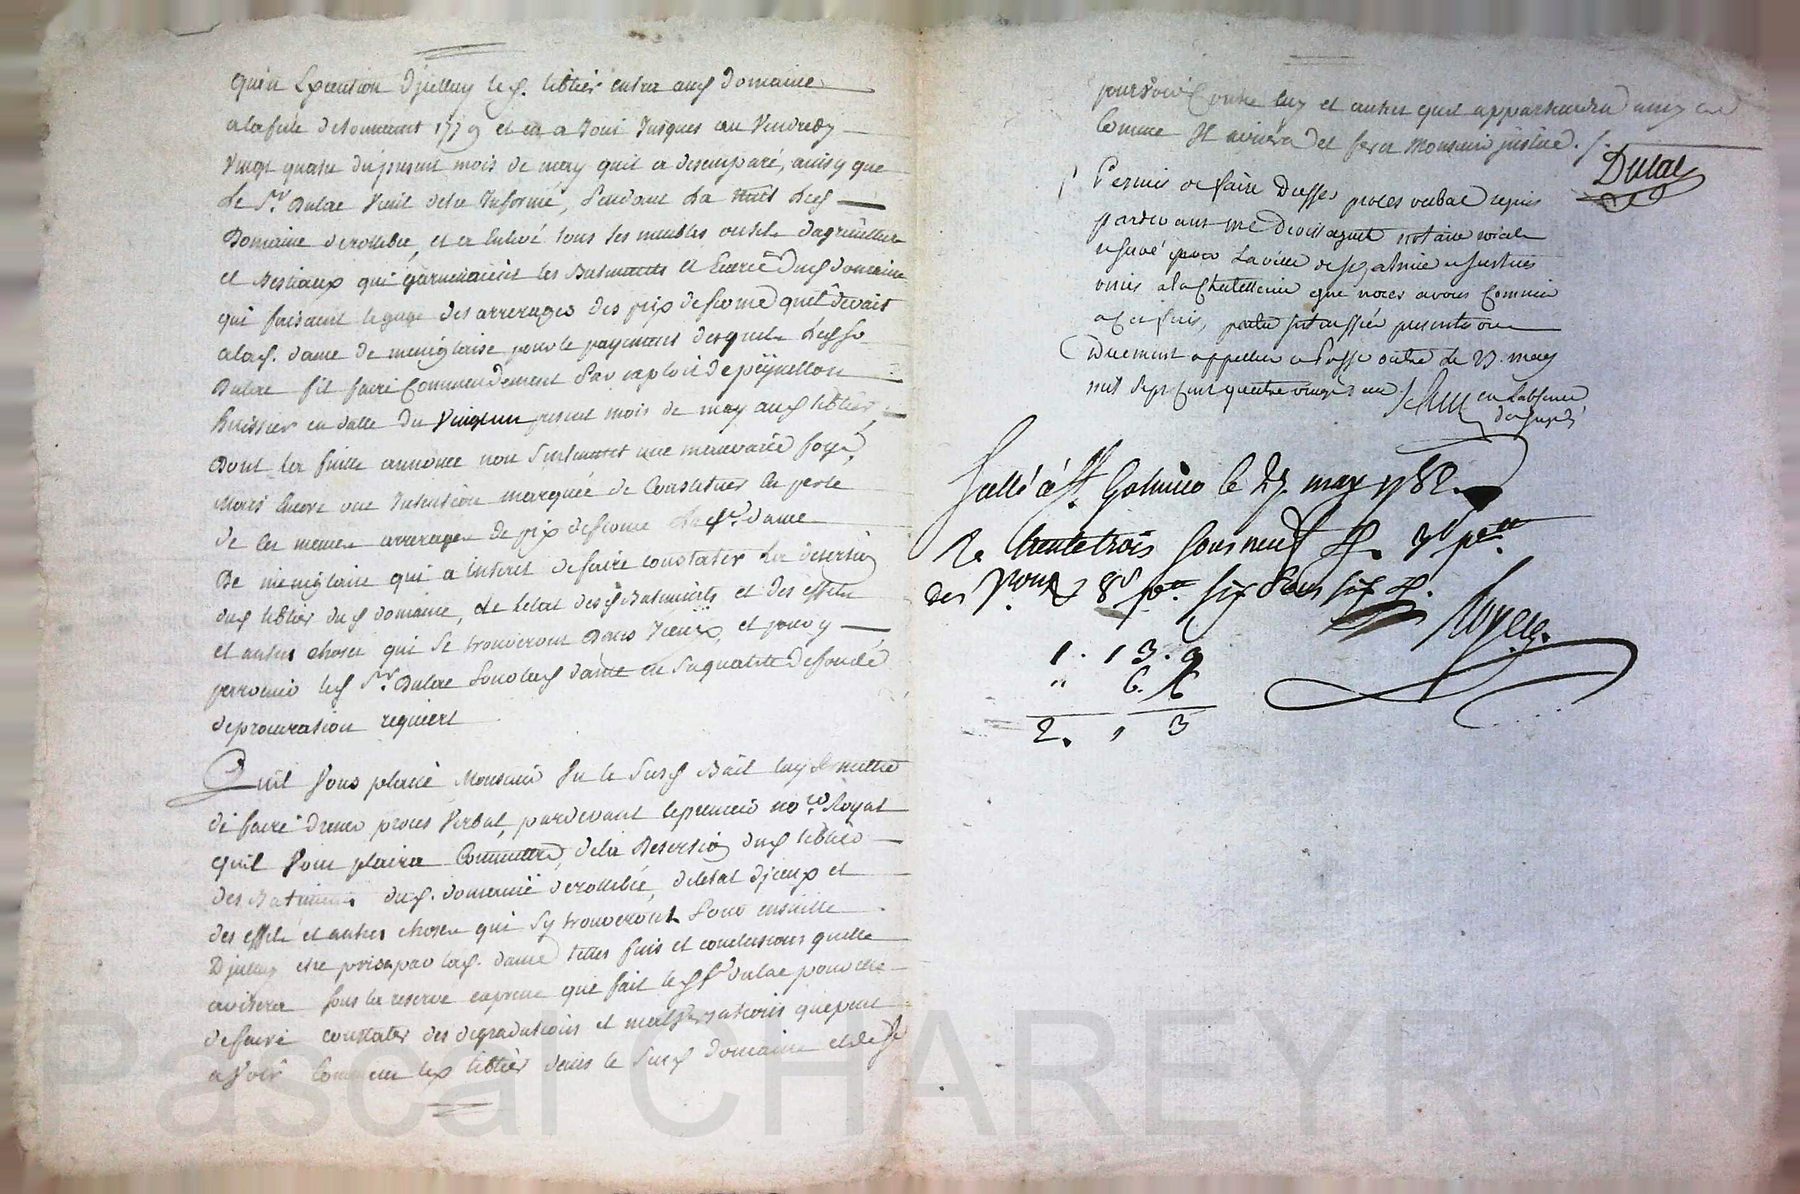 qu'en Execution d'jcelluy led. tiblier entra aud. domaine
a la fete de tousaint 1779 et en a Joui Jusques au Vendredy
Vingt quatre du present mois de may quil a desemparé, ainsy que
Le Sr. Dulac Vient detre Informé, Pendant La nuit dud.
Domaine de et a Enlevé tous les meubles outils dagriculture
et Bestiaux qui garnissaient les Batiments et Ecurie dud. domaine
qui faisaient le gage des arrerages des prix de ferme quil devait
a lad. dame de meniglaise pour le payement desquels Led. Sr.
Dulac fit faire Commandement Par exploit de peyrellon
huissier en datte du Vingt un present mois de may aud. tiblier,
Dont la fuitte annonce non Seulement une mauvaise foy,
Mais Encore une Intention marquée de Constituer en perte
de ces memes arrerages de prix de ferme Lad. dame
De meniglaise qui a Interet de faire constater La desertion
dud. tiblier dud. domaine, de Letat desd. Batiments et des effets
et autres choses qui se trouveront Dans Iceux, et pour y
parvenir led. Sr. Dulac Pour lad. dame en Sa qualité de fondé
de procuration requiert
Quil Vous plaise Monsieur Vu le Susd. Bail luy Permettre
de faire dresser proces Verbal, pardevant le premier nore. Royal
quil Vous plaira Commettre, de la Desertion dud. tiblier
des Batiments dud. domaine de, de letat d'jceux et
des effets et autres choses qui S'y trouveront Pour ensuitte
D'jcelluy etre prises par lad. dame telles fins et conclusions quelle
avisera sous la reserve expresse que fait led. Sr. dulac pour elle
de faire constater des degradations et malversations que peut
avoir Commises led. tiblier dans le Susd. domaine et de se
pourvoir Contre luy et autres quil appartiendra ainsy et
Comme Il avisera et ferez Monsieur justice.
Dulac
Permis de faire Dresser proces verbal requis
pardevant me notaire royal
reservé pour La ville de St. galmier
unies a la Chatellenie que nous avons Commis
a cet effet, partie interessée presente ou
Duement appellée a Passé outre Le 25. may
mil Sept Cent quatre vingt en Labsence
Scellé à St. Galmier le 25. may 1782.
Re trente trois sous neuf d.
des pour 8s six sous six d.
Royer
1. 13. 9
" 6. 6
2. , 3
Pascal CHAREYRON